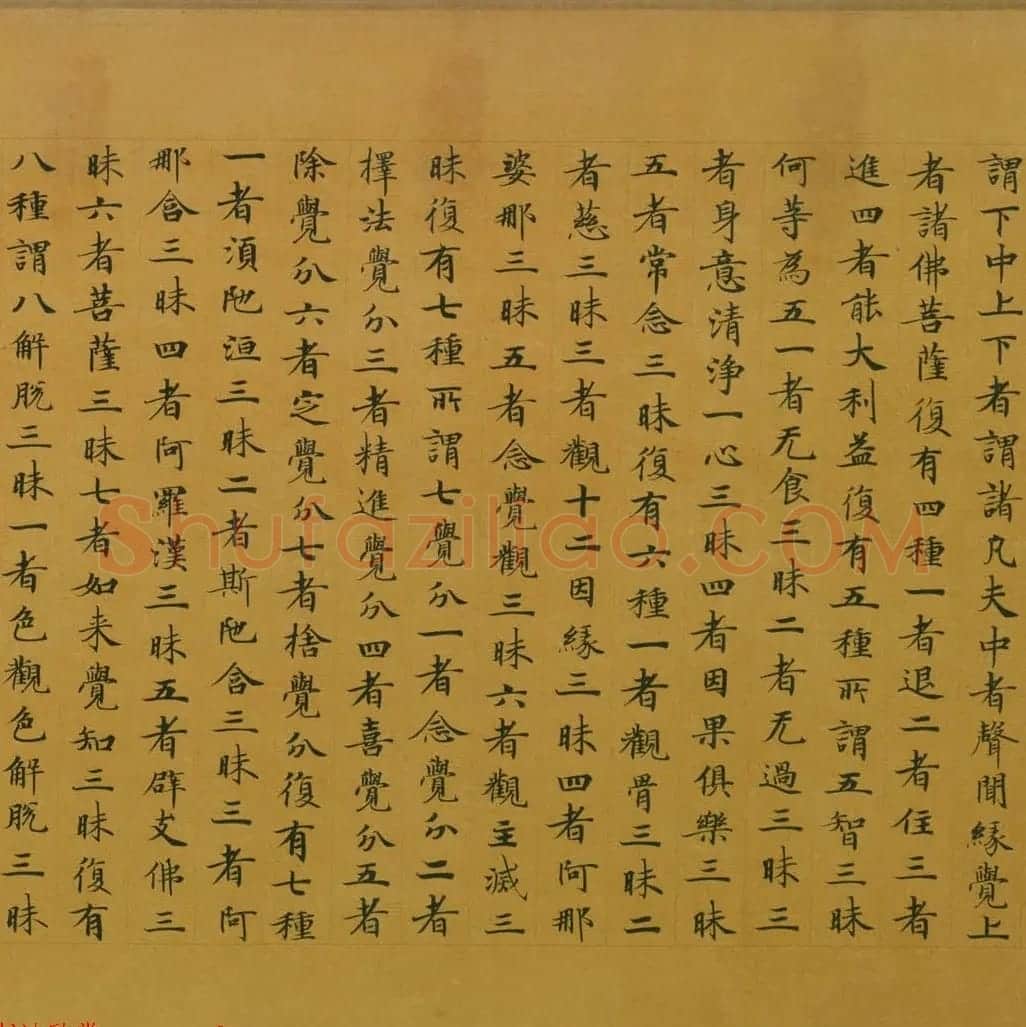 謂下中上下者謂諸凡夫中者聲聞緣覺上
者諸佛菩薩復有四種一者退二者住三者
進四者能大利益復有五種所謂五智三昧
何等為五一者无食三昧二者无過三昧三
者身意清淨一心三昧四者因果俱樂三昧
五者常念三昧復有六種一者觀骨三昧二
者慈三昧三者觀十二因緣三昧四者阿那
婆那三昧五者念覺觀三昧六者觀生滅三
昧復有七種所謂七覺分一者念覺分二者
擇法覺分三者精進覺分四者喜覺分五者
除覺分六者定覺分七者捨覺分復有七種
一者須陁洹三昧二者斯陁含三昧三者阿
那含三昧四者阿羅漢三昧五者辟支佛三
昧六者菩薩三昧七者如来覺知三昧復有
八種謂八解脫三昧一者色觀色解脫三昧
Shufaziliao.COM